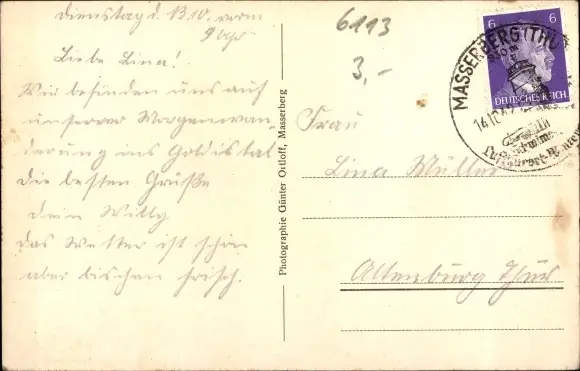 Dienstag d. 13.10. vorm
9 Uhr
Liebe Lina!
Wir befinden uns auf
unserer Morgenwan-
derung ins Goldistal
die besten Grüße
dein Willy
das Wetter ist schön
aber bischen frisch.
Photographie Günter Ostloff, Masserberg
6113
3,-
Frau
Lina Müller
Altenburg Thür
6 6
DEUTSCHES REICH
MASSERBERG (THÜR
14.10.42